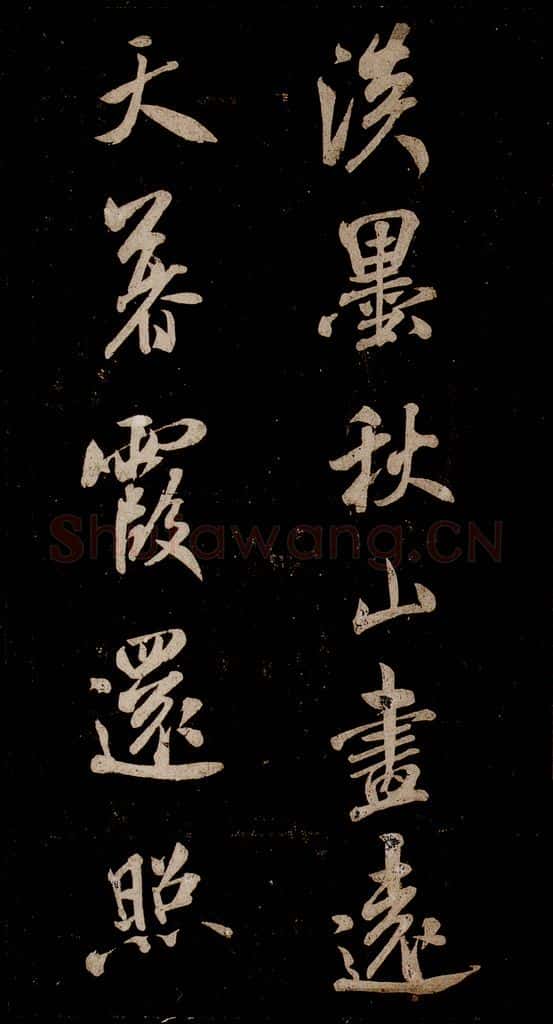 淡墨秋山畫遠
天暮霞還照
Shufawang.CN